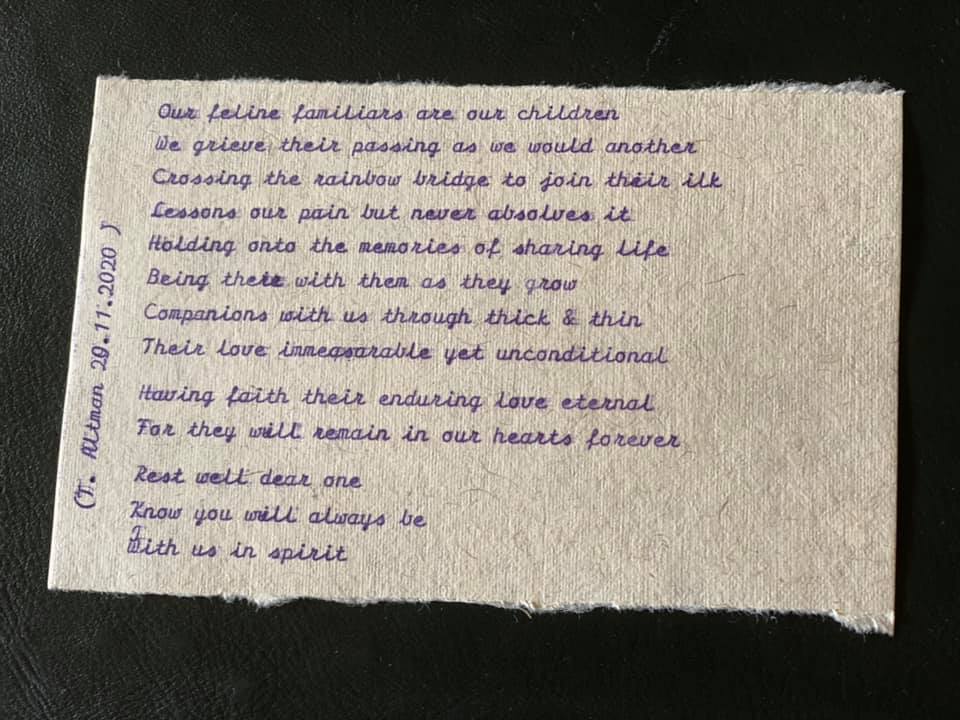 Our feline familiars are our children
We grieve their passing as we would another
Crossing the rainbow bridge to join their ilk
Lessons our pain but never absolves it
Holding onto the memories of sharing life
Being there with them as they grow
Companions with us through thick & thin
Their love immeasarable yet unconditional
Having faith their enduring love eternal
For they will remain in our hearts forever
Rest well dear one
Know you will always be
With us in spirit
(T. Altman 29.11.2020 )